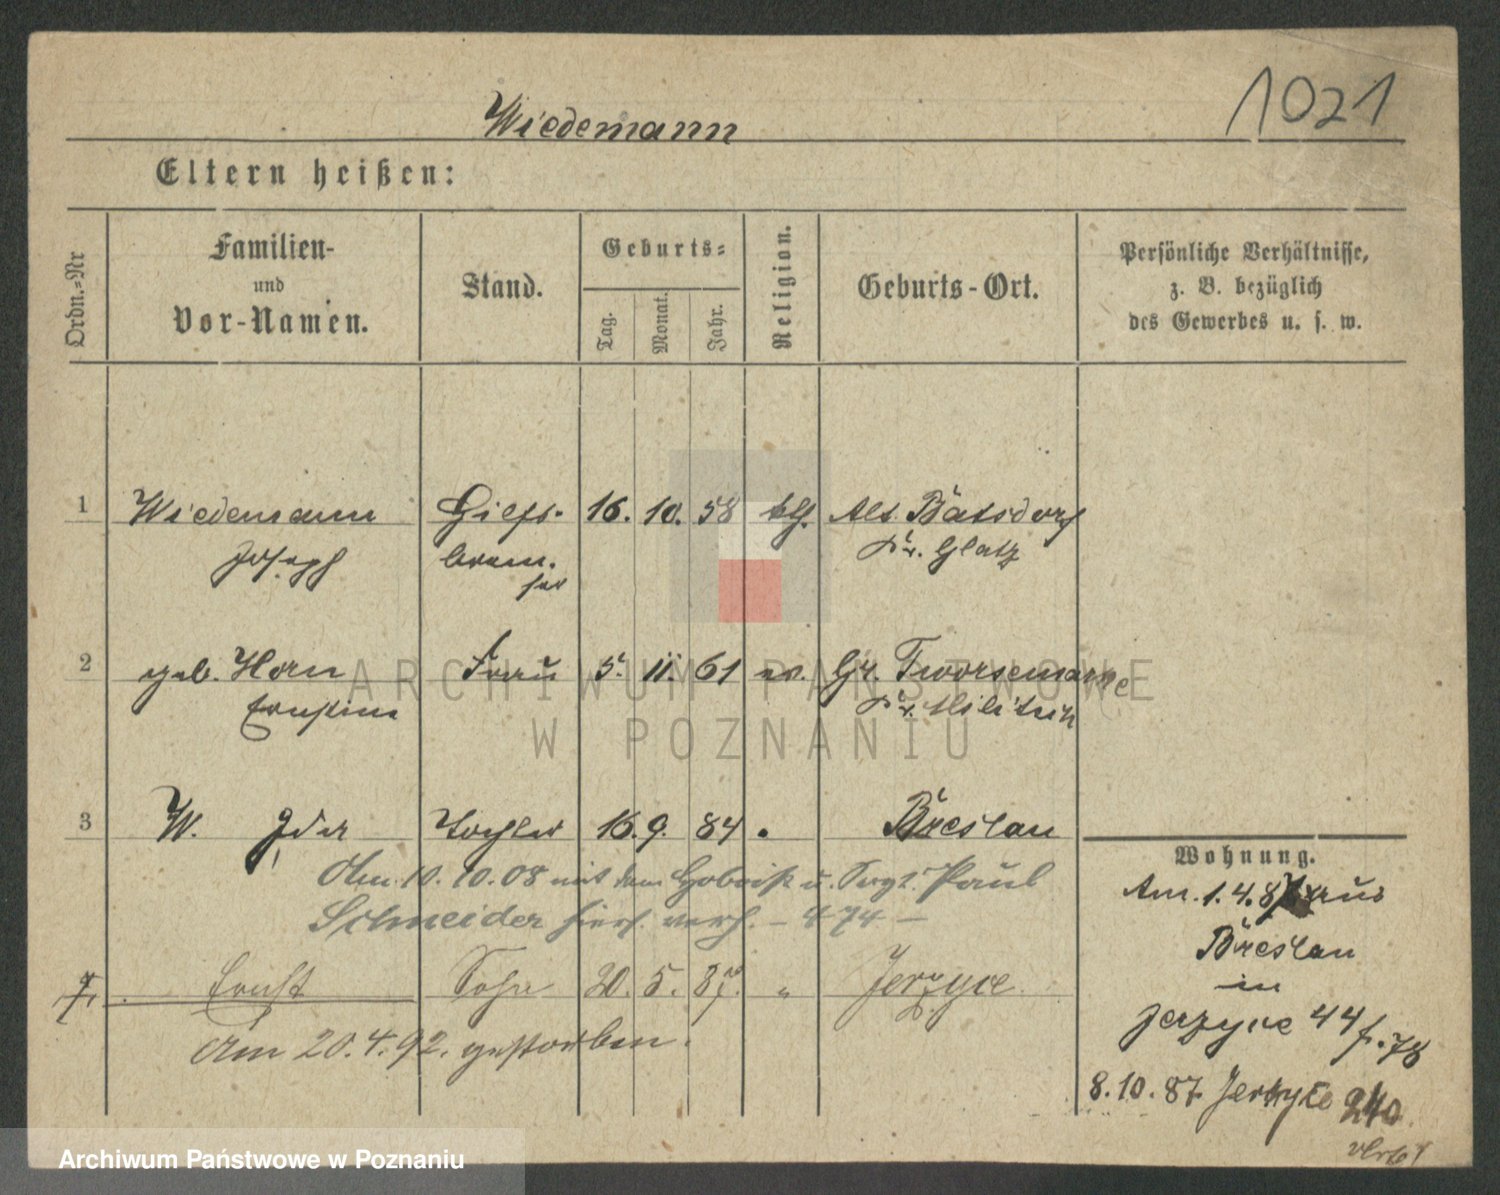 1021
Wiedemann
Eltern heißen:
Ordn.=Nr
Familien-
und
Vor-Namen.
Stand.
Geburts=
Tag.
Monat.
Jahr.
Religion.
Geburts-Ort.
Persönliche Verhältnisse,
z. B. bezüglich
des Gewerbes u. s. w.
1 Wiedemann 16. 10. 58 Alt Batsdorf
Joseph Kr. Glatz
2 geb. Horn Frau 5. 11. 61 ev. Gr. Tworsemirke
Ernstine Kr. Militsch
3 W. Ida Tochter 16. 9. 84 Breslau
Am 10. 10. 08 mit dem Hoboist u. Sergt. Paul
Schneider hier verh. - 474 -
Ernst Sohn 20. 5. 87. " Jerzyce
Am 20. 4. 92. gestorben.
Wohnung.
Am 1. 4. 87 aus
Breslau
in
Jerzyce 44 f. 78
8. 10. 87 Jerzyce 240
ARCHIWUM PAŃSTWOWE
W POZNANIU
Archiwum Państwowe w Poznaniu